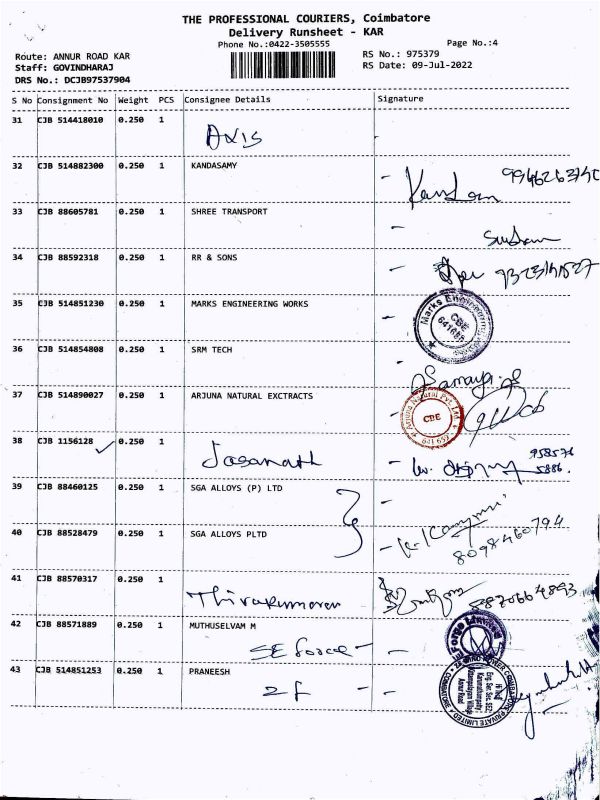 THE PROFESSIONAL COURIERS, Coimbatore
Delivery Runsheet - KAR
Phone No.:0422-3505555
Page No.:4
Route: ANNUR ROAD KAR
RS No.: 975379
Staff: GOVINDHARAJ
RS Date: 09-Jul-2022
DRS No.: DCJB97537904
S No Consignment No Weight PCS Consignee Details Signature
31 CJB 514418010 0.250 1
AXIS
32 CJB 514882300 0.250 1 KANDASAMY
33 CJB 88605781 0.250 1 SHREE TRANSPORT
34 CJB 88592318 0.250 1 RR & SONS
35 CJB 514851230 0.250 1 MARKS ENGINEERING WORKS
Marks Engineering
CBE
36 CJB 514854808 0.250 1 SRM TECH
37 CJB 514890027 0.250 1 ARJUNA NATURAL EXCTRACTS
Arjuna Natural Pvt. Ltd
CBE
641 659
38 CJB 1156128 0.250 1
39 CJB 88460125 0.250 1 SGA ALLOYS (P) LTD
40 CJB 88528479 0.250 1 SGA ALLOYS PLTD
8098460794
41 CJB 88570317 0.250 1
Thirukumaran
42 CJB 88571889 0.250 1 MUTHUSELVAM M
SE force
Forge Limited
43 CJB 514851253 0.250 1 PRANEESH
ZF